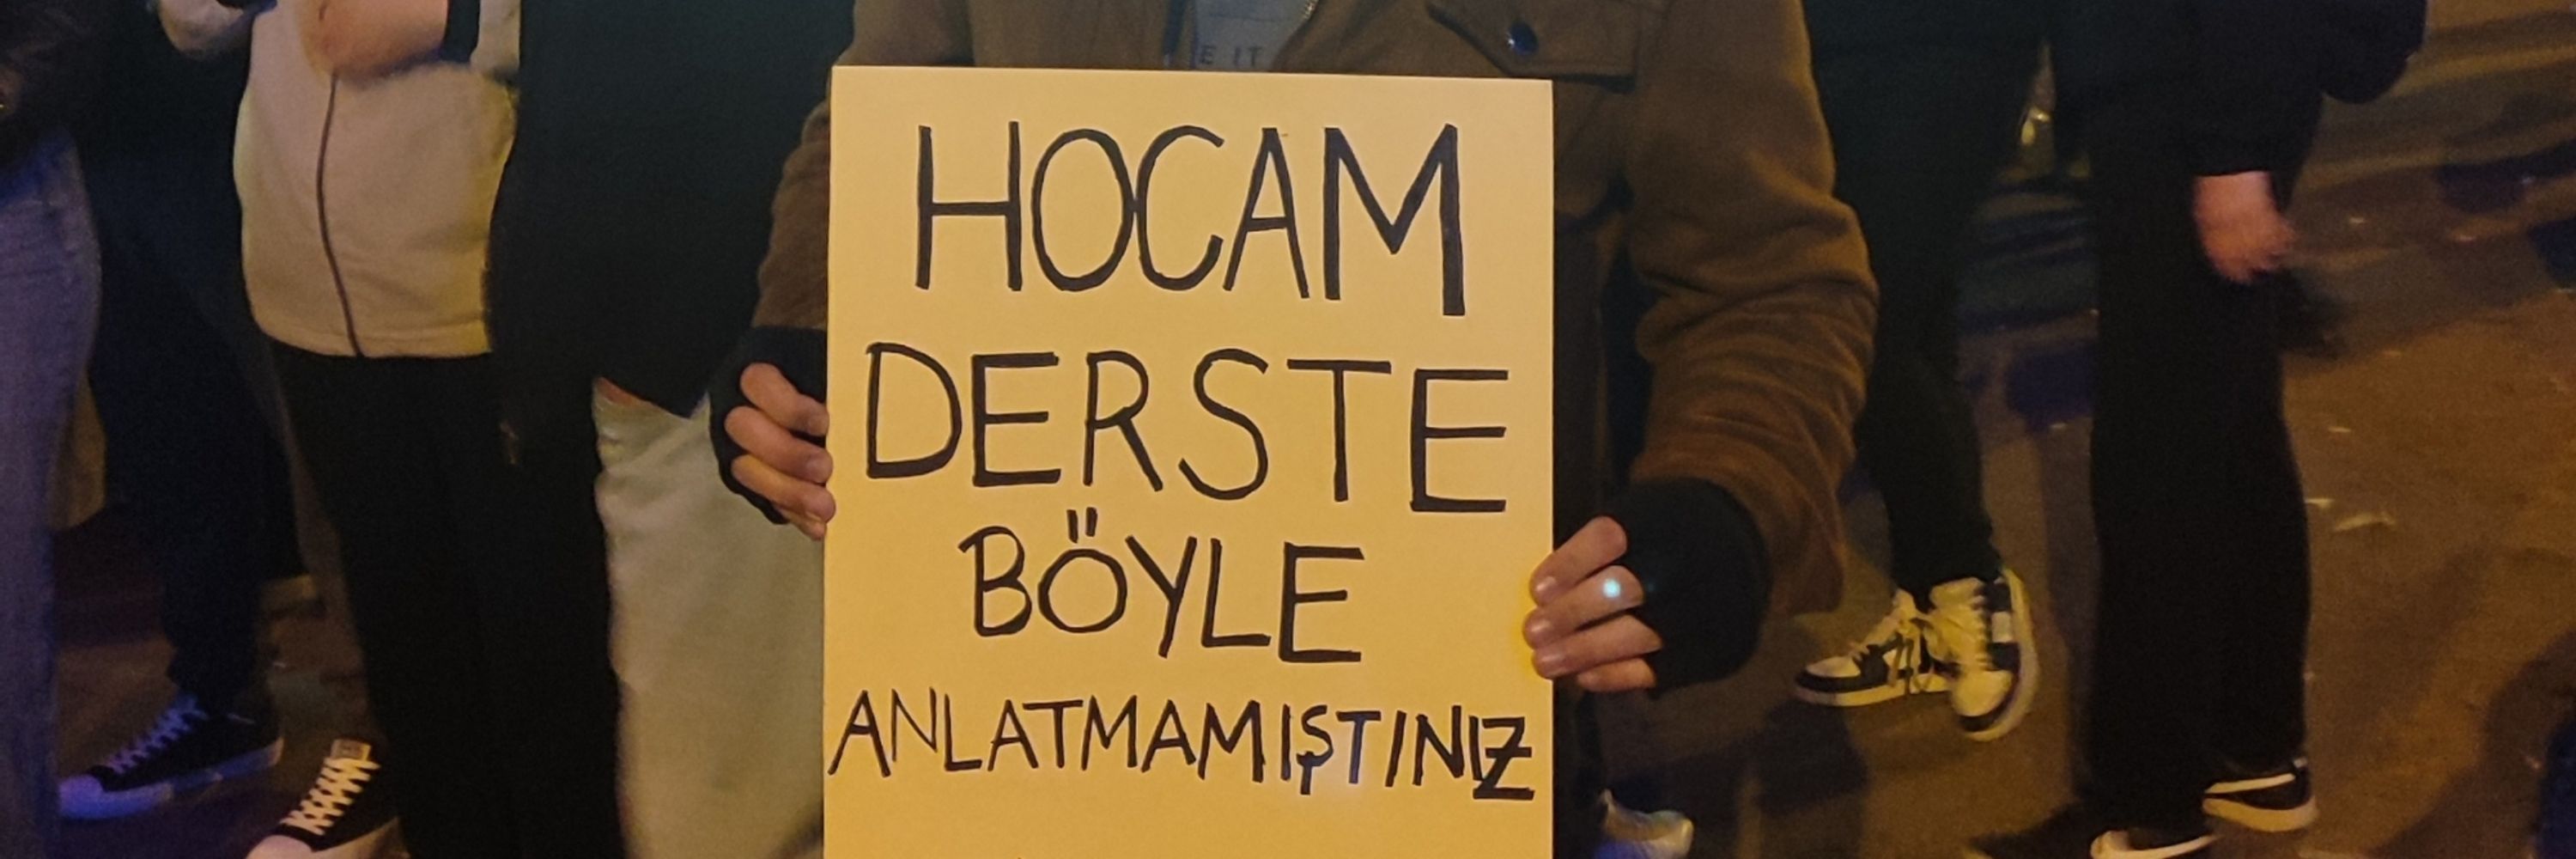 E IT
HOCAM
DERSTE
BÖYLE
ANLATMAMIŞTINIZ